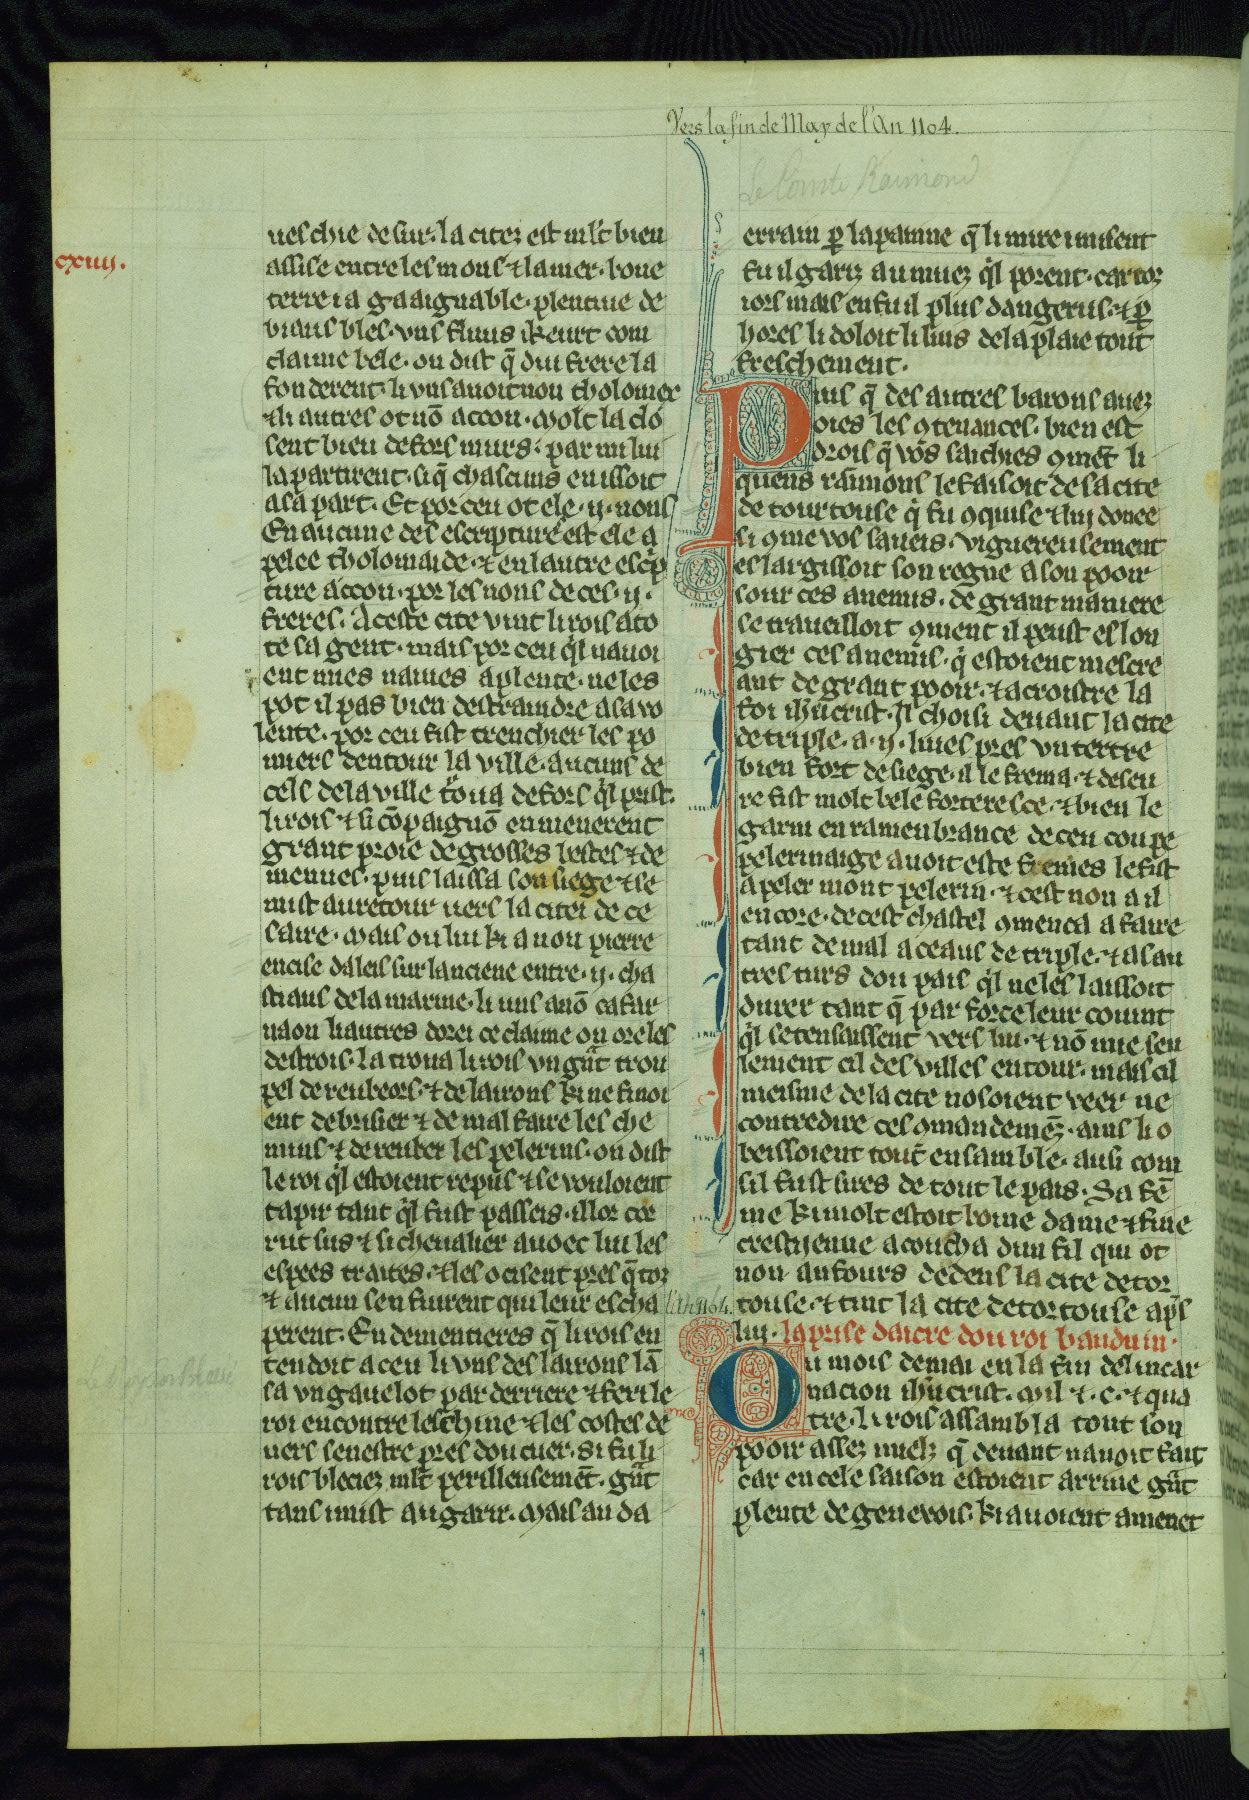 Vers la fin de May de l'An 1104.
Le Comte Raimond
cxiiij.
ueschie de sur. la citez est mlt bien
assise entre les mons & la mer. bone
terre i a gaaignable. plentiue de
vians bles. vns fluuis i keurt com
claime bele. on dist q̃ dui frere la
fonderent. li vns auoit non tholomer
& li autres ot nõ accon. Molt la clo
sent bien de fors murs. par mi lui
la partirent. si q̃ chascuns en issoit
a sa part. Et por ceu ot ele .ij. nons
En aucune des escriptures est ele a
pelee tholomaide. & en lautre escp
ture accon. por les nons de ces .ij.
freres. A ceste cite vint li rois a to
te sa gent. mais por ceu ql nauoi
ent mies naues a plente. ne les
pot il pas bien destraindre a sa vo
lente. por ceu fist trenchier les po
miers dentour la ville. aucuns de
cels de la ville troua defors ql prist.
li rois & si cõpaignõ en menerent
grant proie de grosses bestes & de
menues. puis laissa son siege & se
mist au retour uers la citei de ce
saire. Mais ou liu ki a non pierre
encise daleis sur lanciene entre .ij. cha
stiaus de la marine. li uns a nõ cafar
naon li autres dorei ce claime on ore les
destrois. la troua li rois vn gñt trou
pel de reubeors. & de lairons ki ne finoi
ent de brisier & de mal faire les che
mins & de reuber les pelerins. on dist
le roi ql estoient repus & se vouloient
tapir tant ql fust passeis. il lor cor
rut sus & si cheualier auoec lui les
espees traites. & les ocisent pres q̃ toz
& aucun sen fuirent qui leur escha
perent. En dementieres q̃ li rois en
tendoit a ceu li vns des lairons lã
sa vn gauelot par derriere & feri le
roi encontre leschine & les costes de
uers senestre pres dou cuer. Si fu li
rois bleciez mlt perilleusemẽt. gñt
tans i mist au garir. Mais au da
errain p la painne q̃ li mire i misent
fu il gariz au miuez ql porent. car toz
iors mais en fu il plus dangerus. & p
hores li doloit li lius de la plaie tout
freschement.
Puis q̃ des autres barons auez
oies les 9tenances. bien est
drois q̃ vos saichies 9met li
quens raimons le faisoit de sa cite
de tourtouse q̃ fu 9quise & lui donee
si 9me vos saueis. Viguereusement
eslargissoit son regne a son pooir
sour ces anemis. de grant maniere
se traueilloit 9ment il peust eslon
gier ces anemis. q̃ estoient mescre
ant de grant pooir. & acroistre la
foi ihucrist. Il choisi deuant la cite
de triple. a .ij. liues pres vn tertre
bien fort de siege. il le frema. & deseu
re fist molt bele forteresce. & bien le
garni en ramenbrance de ceu con pe
pelerinaige auoit este fremes le fist
apeler mont pelerin. & cest non a il
encore. de cest chastel 9menca a faire
tant de mal a ceaus de triple. & as au
tres turs dou pais ql ne les laissoit
durer tant q̃ par force leur couint
ql se tensaissent vers lui. & nõ mie seu
lement cil des villes entour. mais cil
meisme de la cite nosoient veer ne
contredire ces 9mandemez. ains li o
beissoient tout ensamble. ausi com
sil fust sires de tout le pais. Sa fẽ
me ki molt estoit bonne dame & fine
crestijenne acoucha dun fil qui ot
non anfours dedens la cite de tor
touse. & tint la cite de tortouse apṣ
lui. la prise dacre dou roi bauduin.
l'an 1104.
Ou mois de mai en la fin de lincar
nacion ihucrist. Mil & .c. & qua
tre. li rois assambla tout son
pooir assez mielz q̃ deuant nauoit fait
car en cele saison estoient arriue gñt
plente de geneuois. ki auoient amenet